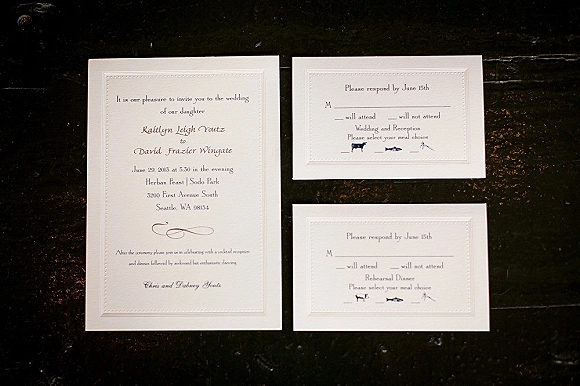 It is our pleasure to invite you to the wedding
of our daughter
Kaitlyn Leigh Youtz
to
David Frazier Wingate
June 29, 2013 at 5:30 in the evening
Herban Feast | Sodo Park
3200 First Avenue South
Seattle, WA 98134
After the ceremony please join us in celebrating with a cocktail reception
and dinner followed by awkward but enthusiastic dancing
Chris and Dabney Youtz
Please respond by June 15th
M
__ will attend __ will not attend
Wedding and Reception
Please select your meal choice
Please respond by June 15th
M
__ will attend __ will not attend
Rehearsal Dinner
Please select your meal choice